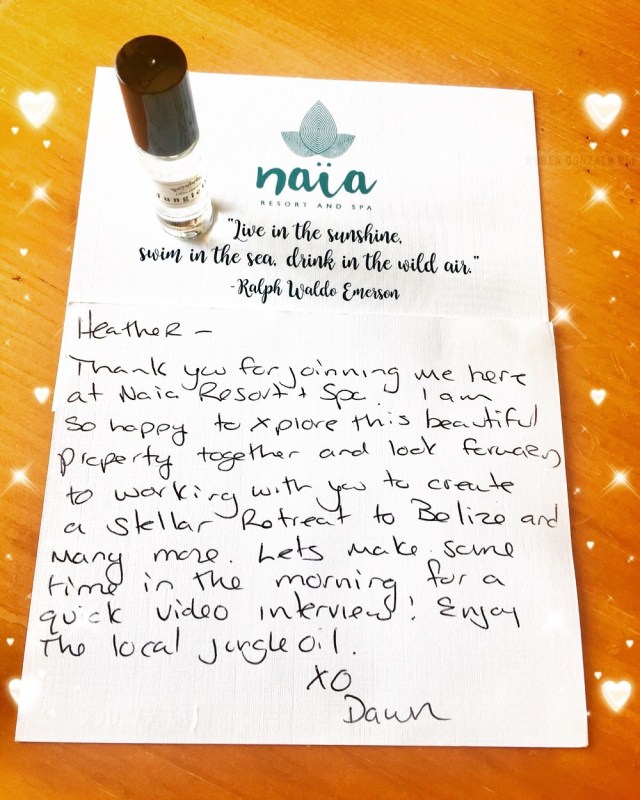 naïa
RESORT AND SPA
"Live in the sunshine,
swim in the sea, drink in the wild air."
-Ralph Waldo Emerson
Heather -
Thank you for joinning me here
at Naia Resort + Spa. I am
so happy to xplore this beautiful
property together and look forward
to working with you to create
a stellar Retreat to Belize and
many more. Lets make some
time in the morning for a
quick video interview! Enjoy
The local jungle oil.
XO
Dawn